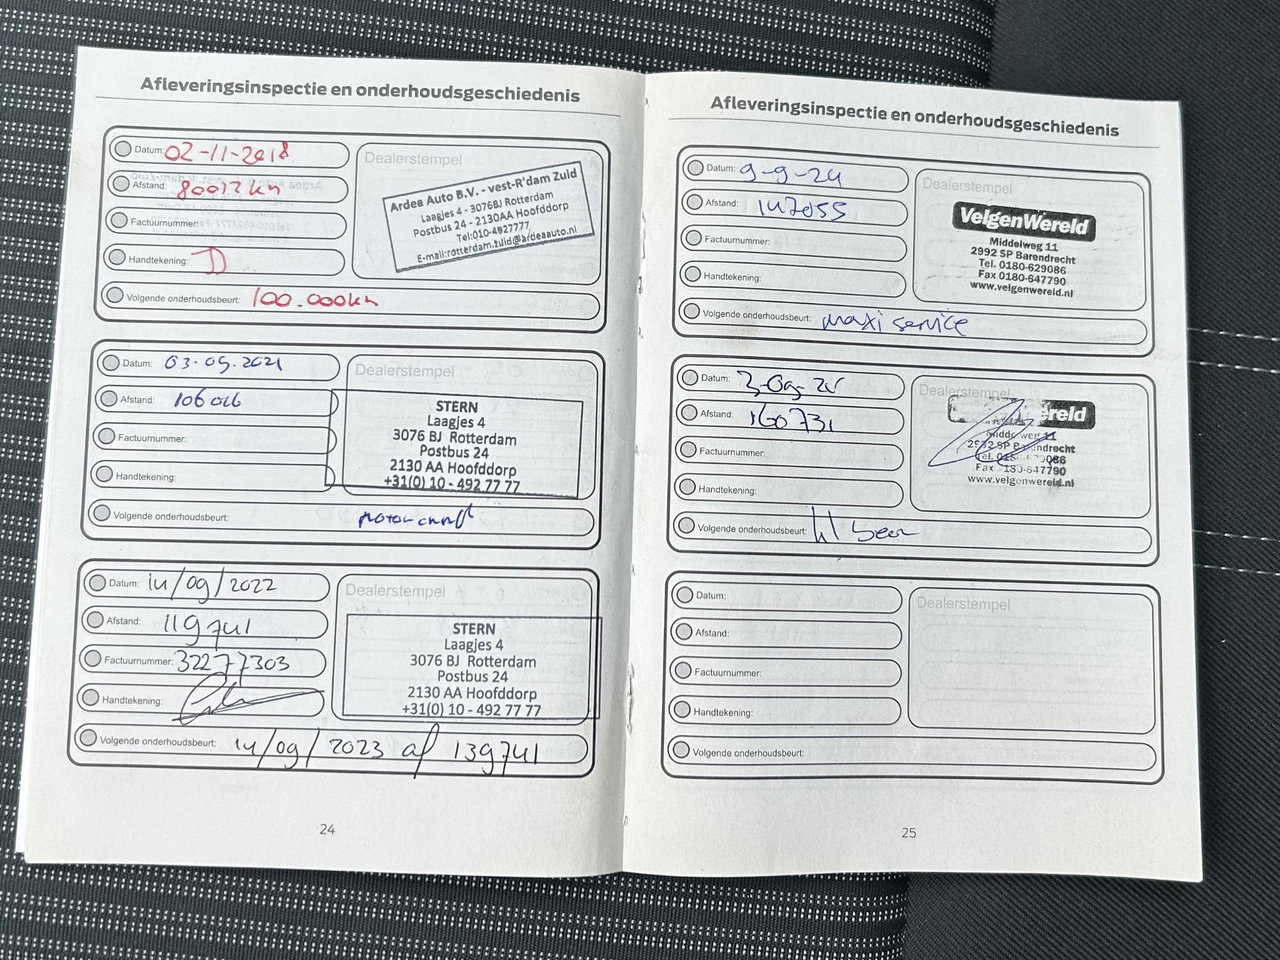 Afleveringsinspectie en onderhoudsgeschiedenis
Datum: 02-11-2018
Afstand: 80012 km
Factuurnummer:
Handtekening:
Volgende onderhoudsbeurt: 100.000km
Dealerstempel
Ardea Auto B.V. - vest-R'dam Zuid
Laagjes 4 - 3076BJ Rotterdam
Postbus 24 - 2130AA Hoofddorp
Tel:010-4927777
E-mail:rotterdam.zuid@ardeaauto.nl
Datum: 03.09.2021
Afstand:
Factuurnummer:
Handtekening:
Volgende onderhoudsbeurt:
Dealerstempel
STERN
Laagjes 4
3076 BJ Rotterdam
Postbus 24
2130 AA Hoofddorp
+31(0) 10 - 492 77 77
Datum: 14/09/2022
Afstand: 119741
Factuurnummer: 32277303
Handtekening:
Volgende onderhoudsbeurt: 14/09/2023 of 139741
Dealerstempel
STERN
Laagjes 4
3076 BJ Rotterdam
Postbus 24
2130 AA Hoofddorp
+31(0) 10 - 492 77 77
24
Afleveringsinspectie en onderhoudsgeschiedenis
Datum: 9-9-24
Afstand: 147055
Factuurnummer:
Handtekening:
Volgende onderhoudsbeurt: maxi service
Dealerstempel
VelgenWereld
Middelweg 11
2992 SP Barendrecht
Tel. 0180-629086
Fax 0180-647790
www.velgenwereld.nl
Datum:
Afstand: 160731
Factuurnummer:
Handtekening:
Volgende onderhoudsbeurt:
Dealerstempel
Middelweg 11
2992 SP Barendrecht
www.velgenwereld.nl
Datum:
Afstand:
Factuurnummer:
Handtekening:
Volgende onderhoudsbeurt:
Dealerstempel
25